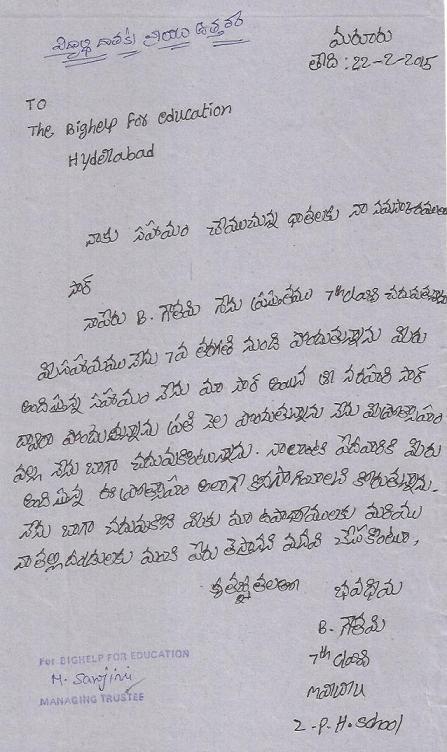 విద్యార్థి దాతకు వ్రాయు ఉత్తరం
మరూరు
తేది : 22-2-2015
TO
The Bighelp For education
Hyderabad
నాకు సహాయం చేయుచున్న ధాతలకు నా నమస్కారములు
సార్
నాపేరు B. గౌతమి నేను ప్రస్తుతము 7th class చదువుతున్నాను
మీ సహాయము నేను 7వ తరగతి నుండి పొందుతున్నాను మీరు
అందిస్తున్న సహాయం నేను మా సార్ అయిన శ్రీ నరహరి సార్
ద్వారా పొందుతున్నాను ప్రతి నెల పొందుతున్నాను నేను మీ ప్రోత్సాహం
వల్ల నేను బాగా చదువుకుంటున్నాను. నాలాంటి పేదవారికి మీరు
అందిస్తున్న ఈ ప్రోత్సాహం అలాగే కొనసాగించాలని కోరుతున్నాను.
నేను బాగా చదువుకొని మీకు మా ఉపాధ్యాములకు మరియు
నా తల్లిదండ్రులకు మంచి పేరు తెస్తానని మనవి చేసుకొంటూ,
కృతజ్ఞతలతో
భవధీయ
B. గౌతమి
7th class
maruru
Z-P-H-school
For BIGHELP FOR EDUCATION
M. Sarojini
MANAGING TRUSTEE